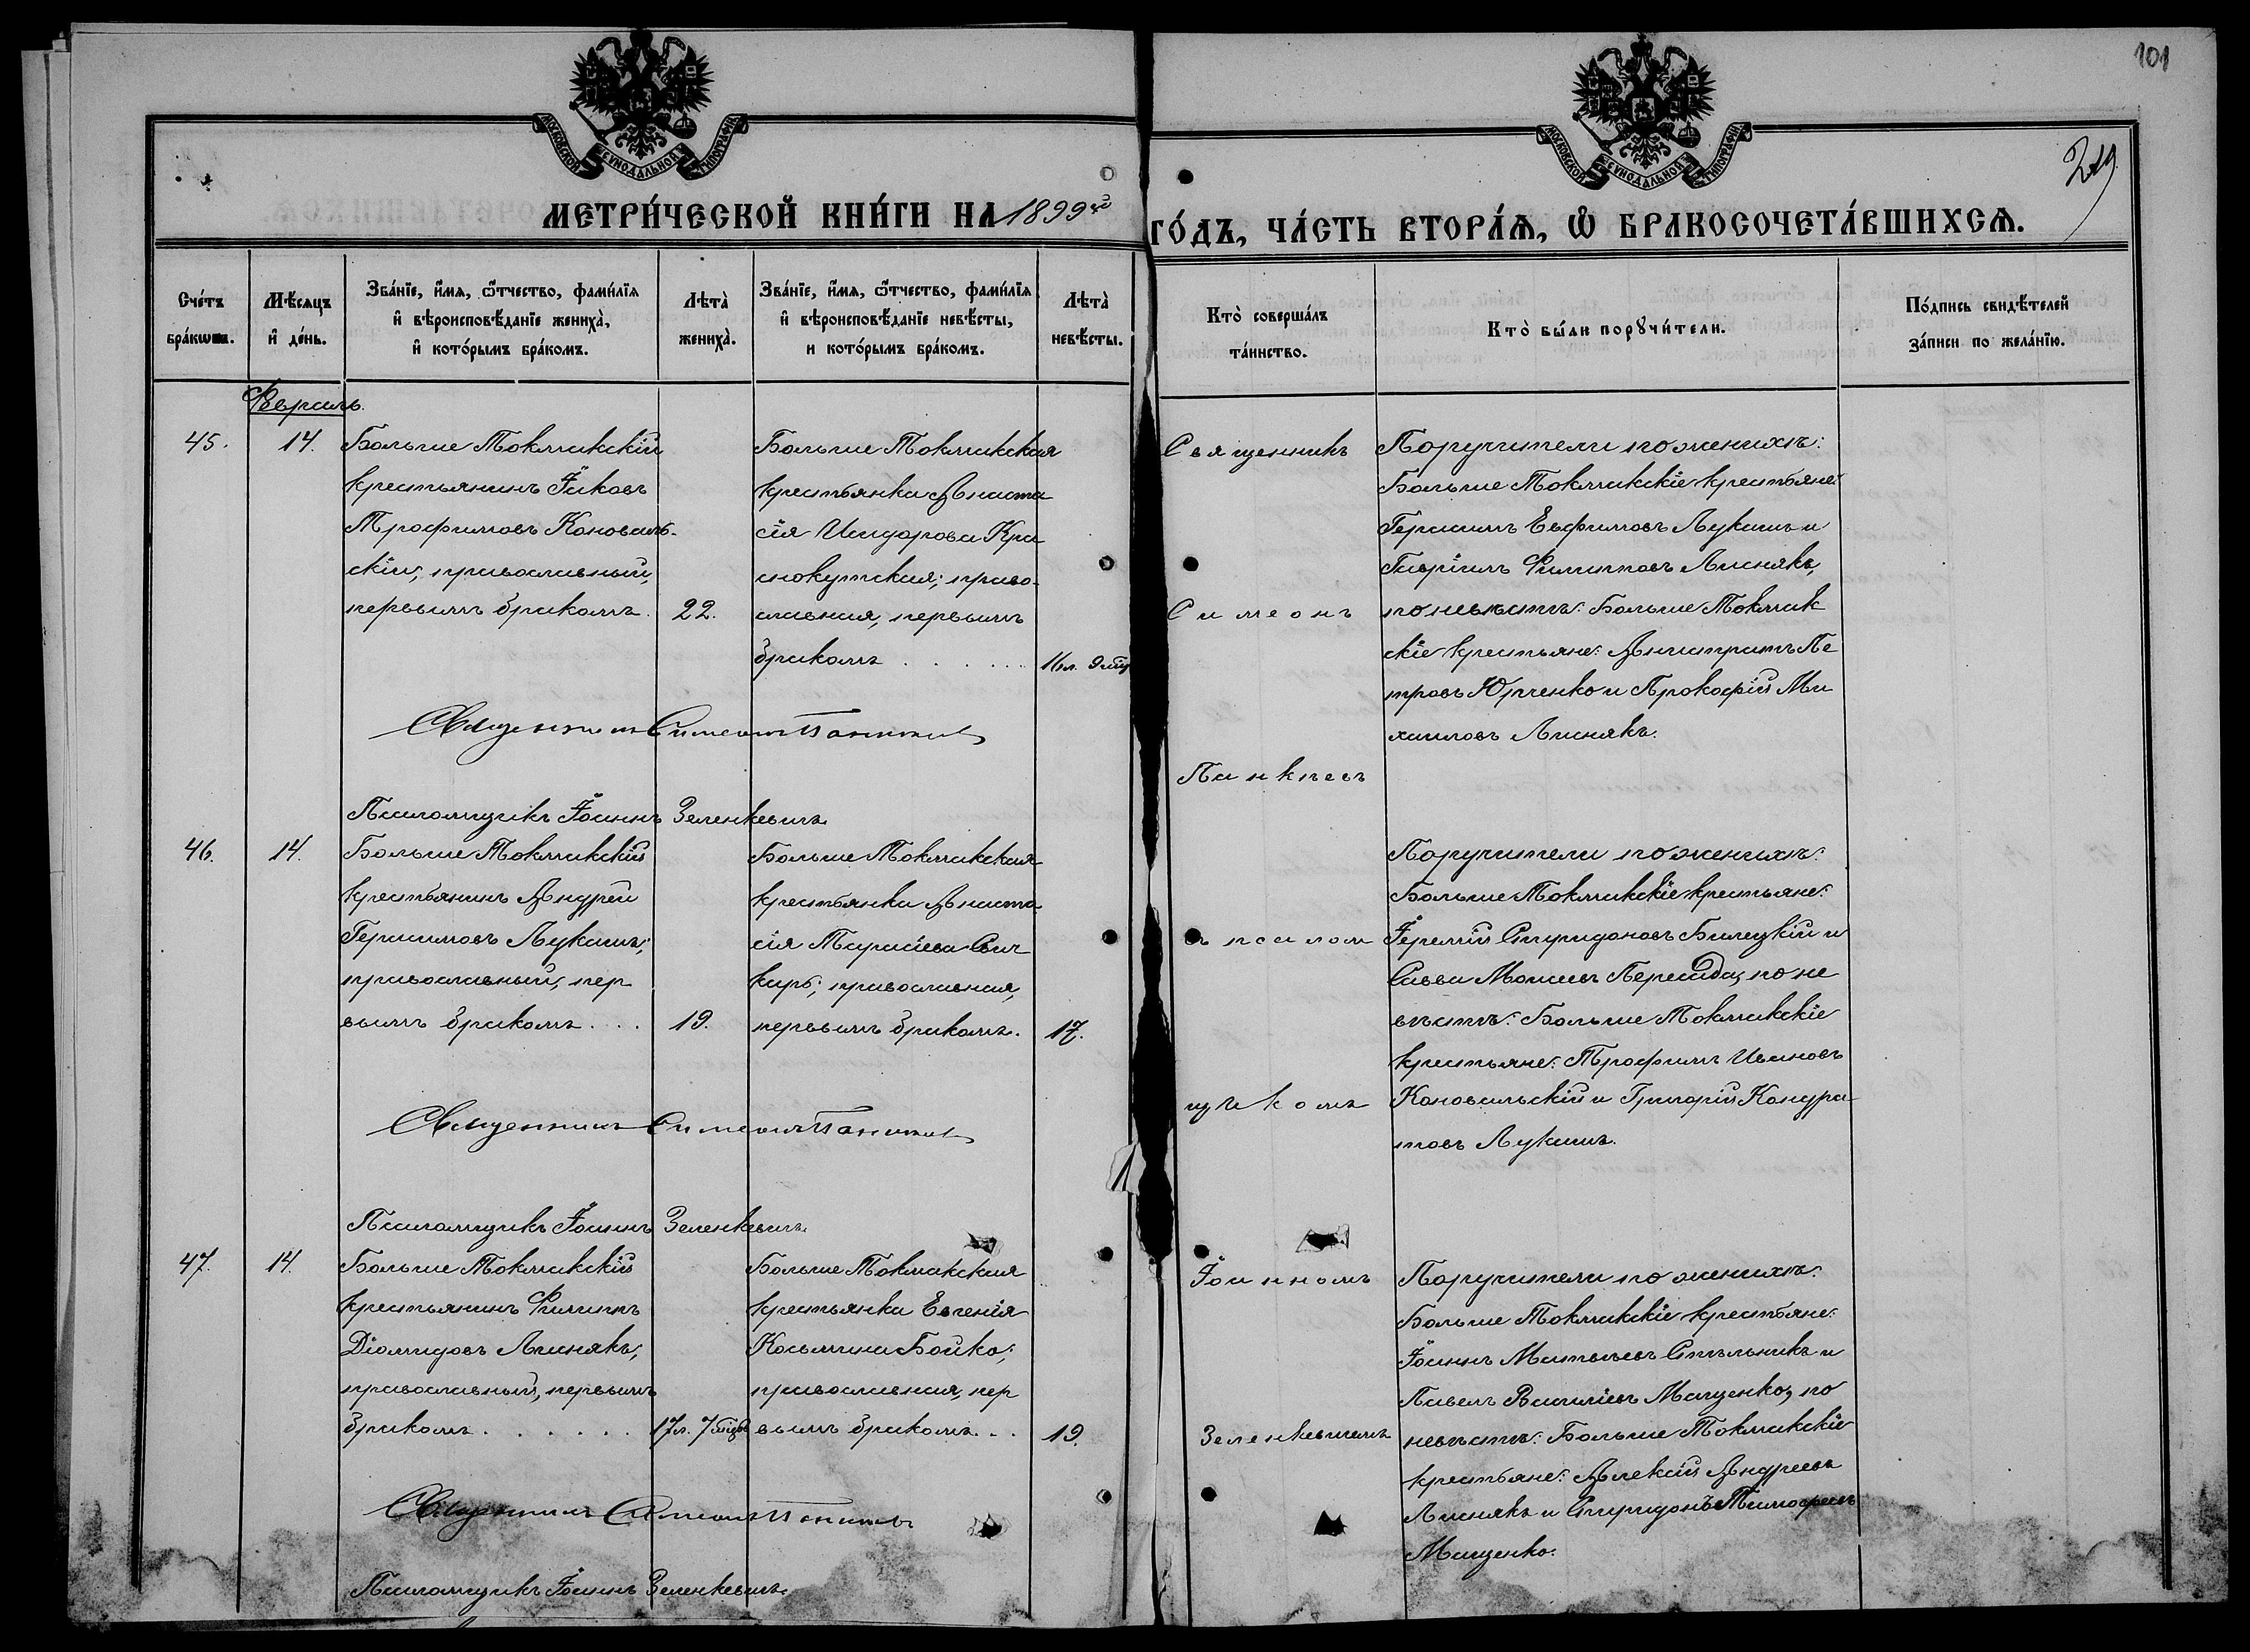 101
219
МОСКОВСКОЙ СѴНОДАЛЬНОЙ ТИПОГРАФІИ
МОСКОВСКОЙ СѴНОДАЛЬНОЙ ТИПОГРАФІИ
МЕТРИ́ЧЕСКОЙ КНИ́ГИ НА 1899й
ГО́ДЪ, ЧА́СТЬ ВТОРА́Ѧ, Ѡ҆ БРАКОСОЧЕТА́ВШИХСѦ.
Сче́тъ бра́кѡвъ.
Мѣ́сяцъ и҆ де́нь.
Зва́нїе, и҆́мя, ѻ҆́тчество, фами́лїя
и҆ вѣроисповѣ́данїе жениха̀,
и҆ кото́рымъ бра́комъ.
Лѣ́та̀ жениха̀.
Зва́нїе, и҆́мя, ѻ҆́тчество, фами́лїя
и҆ вѣроисповѣ́данїе невѣ́сты,
и кото́рымъ бра́комъ.
Лѣ́та̀ невѣ́сты.
Кто̀ соверша́лъ
та́инство.
Кто̀ бы́ли порꙋчи́тели.
По́дпись свидѣ́телей
за́писи по жела́нїю.
Февраль.
45.
14.
Больше Токмакскій
крестьянинъ Іаковъ
Трофимовъ Коноваль-
скій; православный,
первымъ бракомъ.
22.
Больше Токмакская
крестьянка Анаста
сія Исидорова Кра
снокутская; право-
славная, первымъ
бракомъ . . . . . .
16 л. 9 мц
Поручители по женихѣ:
Больше Токмакскіе крестьяне:
Герасимъ Евфимовъ Лукашъ и
Гавріилъ Филипповъ Лиснякъ,
по невѣстѣ: Больше Токмак
скіе крестьяне: Анистратъ Пе
тровъ Юрченко и Прокофій Ми
хаиловъ Лиснякъ.
Священникъ Симеонъ Панкѣевъ
Псаломщикъ Іоаннъ Зеленкевичъ.
46.
14.
Больше Токмакскій
крестьянинъ Андрей
Герасимовъ Лукашъ;
православный, пер
вымъ бракомъ . . .
19.
Больше Токмакская
крестьянка Анаста
сія Тарасіева Свич
карь; православная,
первымъ бракомъ.
17.
Поручители по женихѣ:
Больше Токмакскіе крестьяне:
Іеремій Спиридоновъ Билецкій и
Савва Моисеевъ Пересада, по не
вѣстѣ: Больше Токмакскіе
крестьяне: Трофимъ Ивановъ
Коновальскій и Григорій Кондра
товъ Лукашъ.
Священникъ Симеонъ Панкѣевъ
Псаломщикъ Іоаннъ Зеленкевичъ.
47.
14.
Больше Токмакскій
крестьянинъ Филиппъ
Діомидовъ Лиснякъ;
православный, первымъ
бракомъ . . . . . .
17 л. 7 мцвъ
Больше Токмакская
крестьянка Евгенія
Косьмина Бойко;
православная, пер
вымъ бракомъ . . .
19.
Поручители по женихѣ:
Больше Токмакскіе крестьяне:
Іоаннъ Матвѣевъ Стѣльникъ и
Павелъ Василіевъ Мащенко, по
невѣстѣ: Больше Токмакскіе
крестьяне: Алексій Андреевъ
Лиснякъ и Спиридонъ Тимофеевъ
Мащенко.
Священникъ Симеонъ Панкѣевъ
Псаломщикъ Іоаннъ Зеленкевичъ.
Священникъ
Симеонъ
Панкѣевъ
съ псалом
щикомъ
Іоанномъ
Зеленкевичемъ